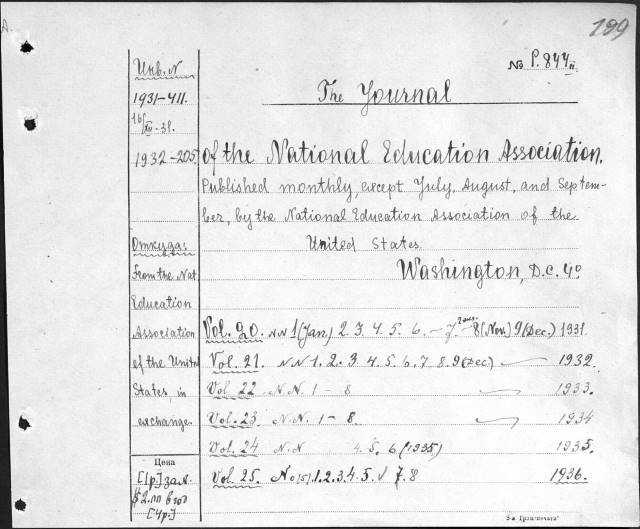 199
№ P.844 II
The Journal
of the National Education Association.
Published monthly, except July, August, and Septem-
ber, by the National Education Association of the
United States.
Washington, D.C. 4°
Vol. 20. NN 1 (Jan) 2. 3. 4. 5. 6. – 7. – 8 (Nov.) 9 (Dec.) 1931.
Vol. 21. NN 1. 2. 3. 4. 5. 6. 7. 8. 9 (Dec) 1932.
Vol. 22 N.N. 1 – 8 1933.
Vol. 23 N.N. 1 – 8. 1934
Vol. 24 N.N 4. 5. 6 (1935) 1935.
Vol. 25. No (5) 1. 2. 3. 4. 5. V 7. 8 1936.
Инв. N
1931–411.
16/XII–31.
1932–205
Откуда:
From the Nat.
Education
Association
of the United
States, in
exchange.
Цена
[1р.] за N.
$2.00 в год
[4р.]